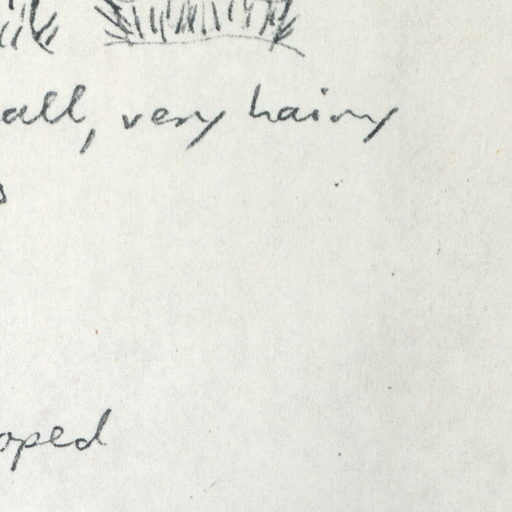 all, very hairy
s
oped